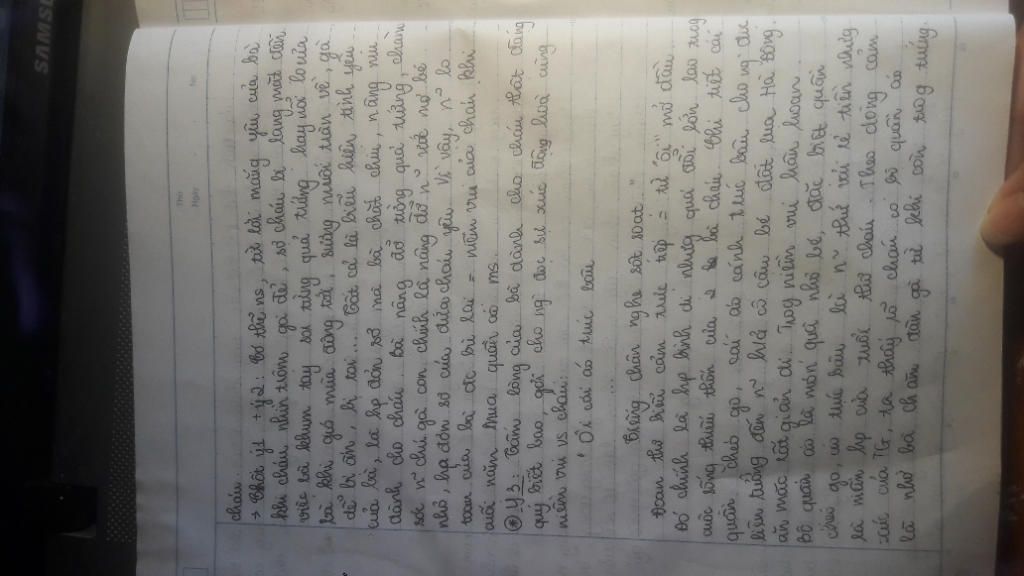 SAMS
Thứ
Ngày
No:
cháu.
→ Khái ý 1 + ý 2: Ba thứ ns, từ lời mắng yêu của bà
khi cháu nhìn trộm gà đẻ, sợ cháu bị lang mặt đến
việc bà khum tay soi từng quả trứng hay nỗi lo của
bà khi gió mùa đông tới, sương muối tràn về, gà
dễ bị ốm, bị toi... Tất cả là biểu hiện tình yêu
của bà, là hp đơn sơ mà bà chắt chiu, nâng niu
dành cho cháu. Bà nâng đỡ từng quả trứng, chăm
sóc n~ chú gà con chính là nâng đỡ n~ ước mơ bé
nhỏ, hp đơn sơ của đứa cháu yêu. Vì vậy, n~ lo
toan của bà đc bù lại = niềm vui của cháu khi
cuối năm mua quần áo ms.
* Ý 3: Tấm lòng của bà dành cho cháu thật đáng
quý biết bao, gợi cho ng` đọc sự xúc động hoà cùng
niềm vui vs cháu:
" Ôi cái áo trúc bâu
Tiếng chân nghe sột soạt."
Đoạn thơ biểu cảm trực tiếp = từ "ôi" mở đầu.
Đó chính là hp bình dị nhưng quá đỗi lớn lao trong
cuộc sống thiếu thốn của bà cháu. Chi tiết cái
quần chéo go, cái áo cánh trúc bâu cho ng` đọc
liên tưởng đến n~ bộ đất lụa Hà Đông.
ăn mặc rất giản dị. Trong niềm vui hân hoan
Bộ quần áo là món quà nhỏ bé, cái biết quần
chéo go, áo trúc bâu là n~ thứ vải rẻ tiền nhưng
là niềm hp của tuổi thơ cháu. Theo dòng cảm
xúc của TG, ta thấy rõ cháu có bộ quần áo
là nhờ bà chăm đàn gà từ khi còn trong trứng.